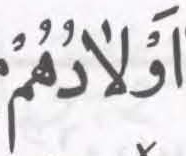 اَوْلاٰدُهُمْ